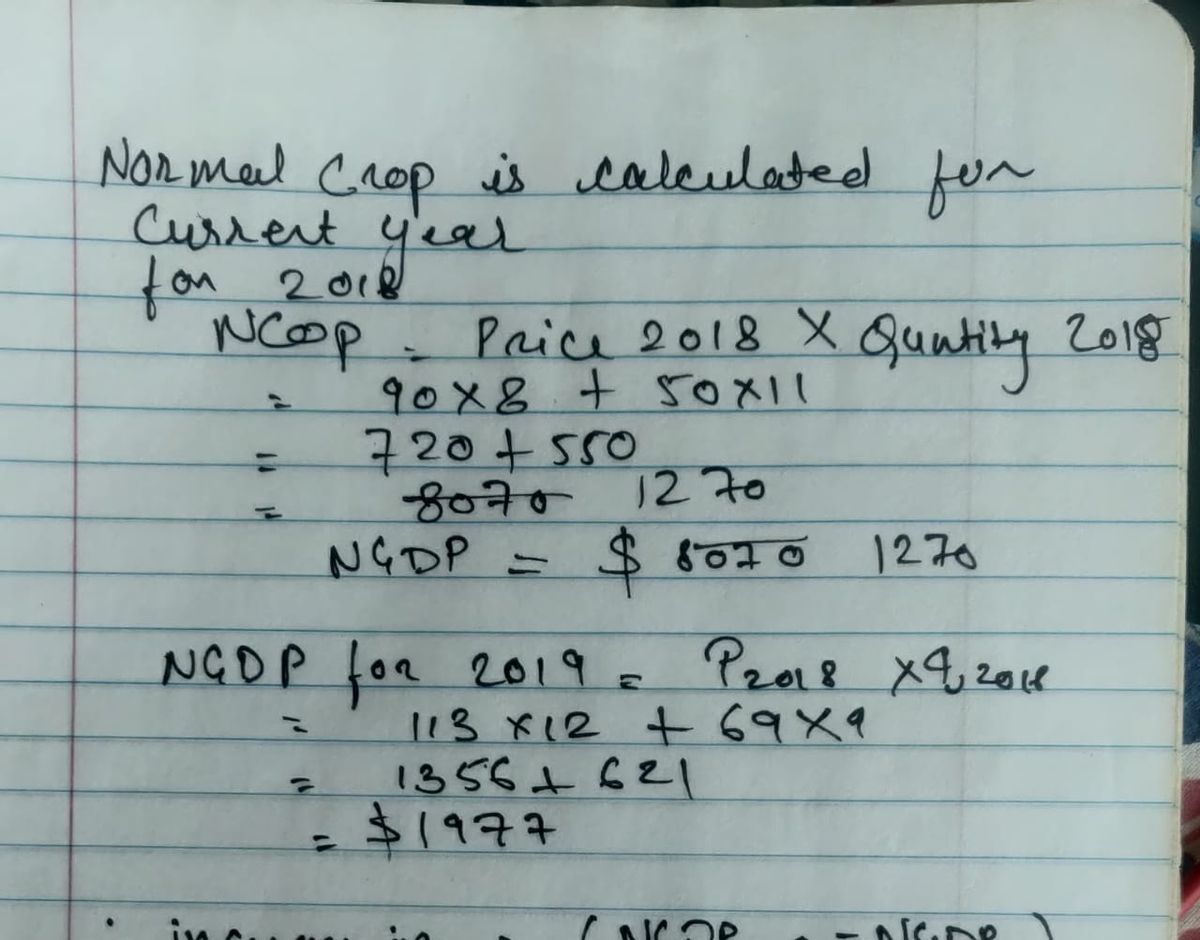 Normal Crop is calculated for
Current year
for 2018
NCOP = Price 2018 X Quntity 2018
= 90 X 8 + 50 X 11
= 720 + 550
= 8070 1270
NGDP = $ 8070 1270
NGDP for 2019 = P2018 x q, 2018
= 113 x 12 + 69 X 9
= 1356 + 621
= $1977